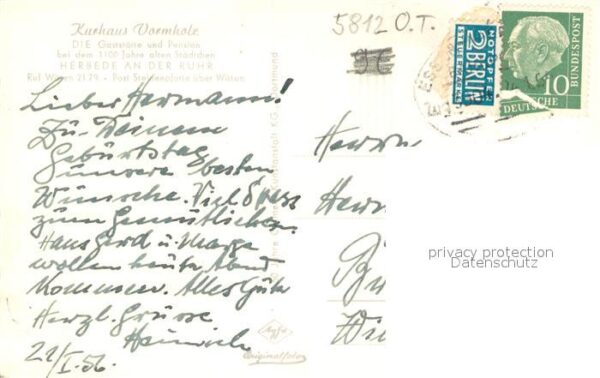 Kurhaus Vormholz
DIE Gaststätte und Pension
bei dem 1100 Jahre alten Städtchen
HERBEDE AN DER RUHR
Ruf Witten 2179 - Post über Witten
Lieber Hermann!
Zu Deinem
Geburtstag
unsere besten
Wünsche. Viel
zum Gemütlichen.
Hans Gerd u. Marga
wollen heute Abend
kommen. Alles Gute
Herzl. Grüsse
Heinrich
22/I.56.
5812 O.T.
NOTOPFER
2 BERLIN
STEUERMARKE
DEUTSCHE
BUNDESPOST
10
Kunstanstalt K.G. Dortmund
Agfa
Originalfoto
Herrn
Herm
privacy protection
Datenschutz